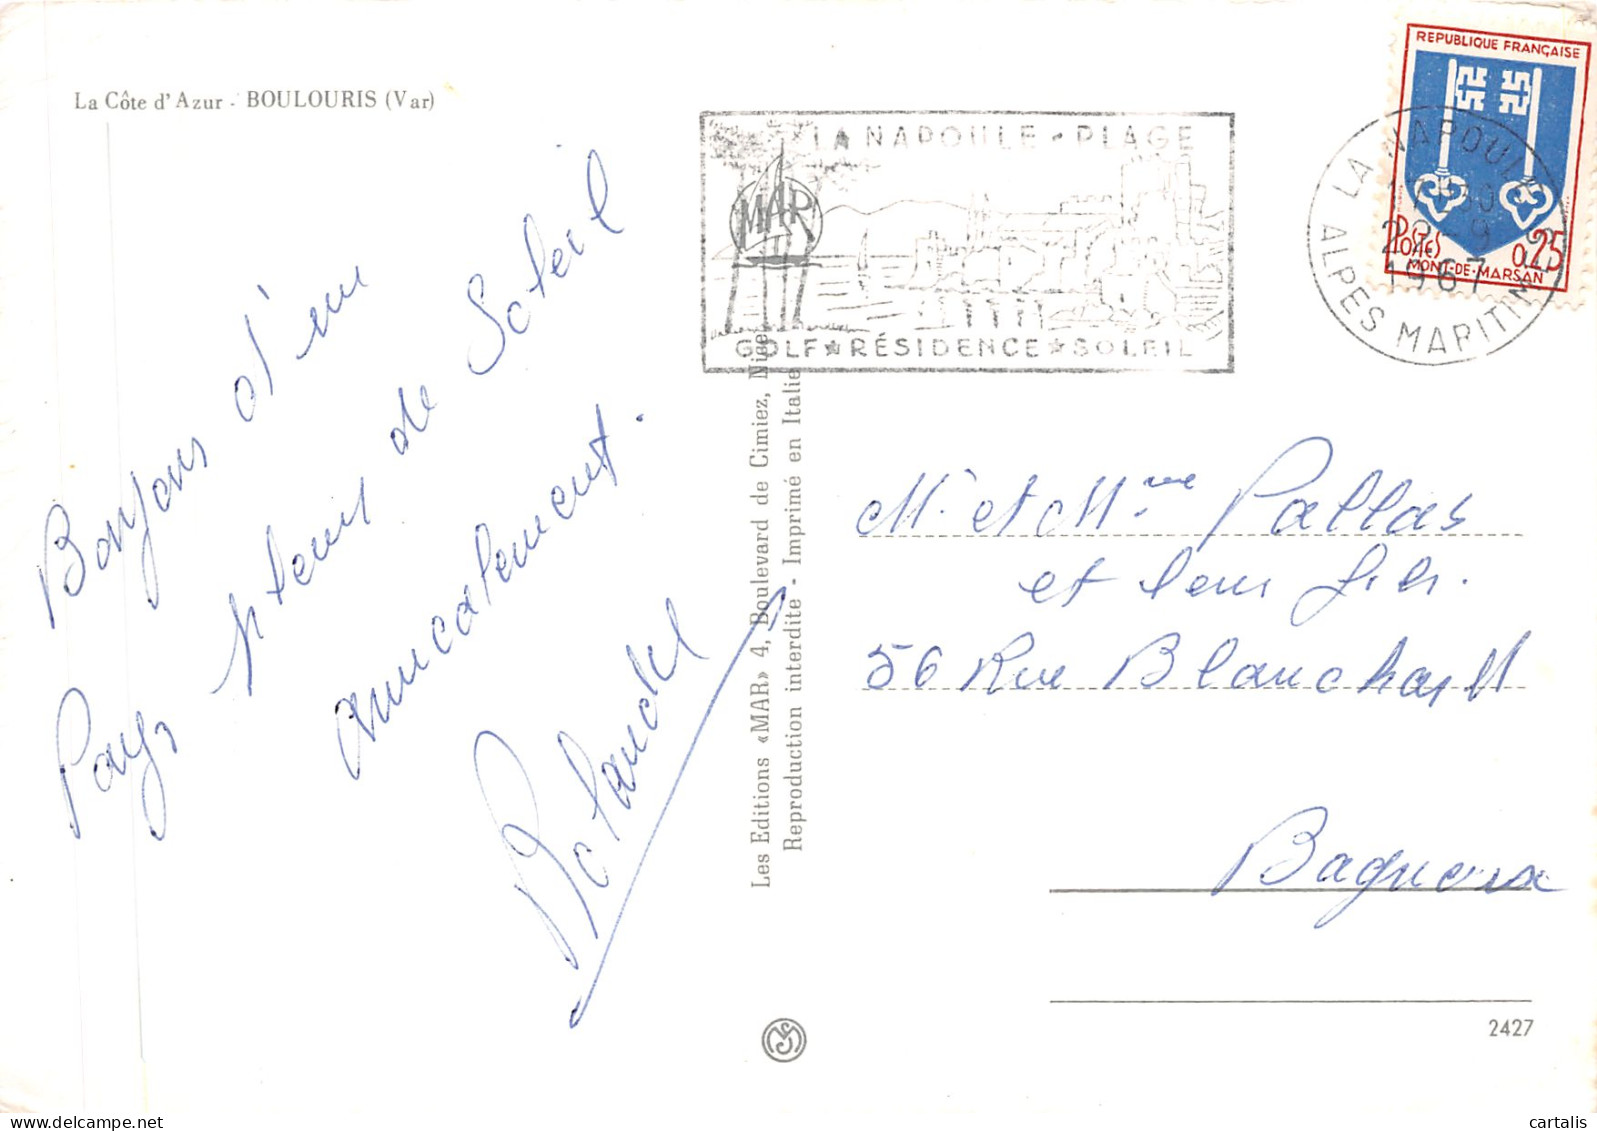 La Côte d'Azur - BOULOURIS (Var)
Bonjour d'un
Pays plein de Soleil
amicalement.
Rolandel
Les Editions «MAR» 4, Boulevard de Cimiez, Nice
Reproduction interdite - Imprimé en Italie
LA NAPOULE - PLAGE
MAR
GOLF ★ RÉSIDENCE ★ SOLEIL
REPUBLIQUE FRANÇAISE
POSTES 0,25
MONT-DE-MARSAN
LA NAPOULE
17H30
1967
ALPES MARITIMES
Mr et Mme Pallas
et leur fils.
56 Rue Blanchard
Bagneux
2427
cartalis